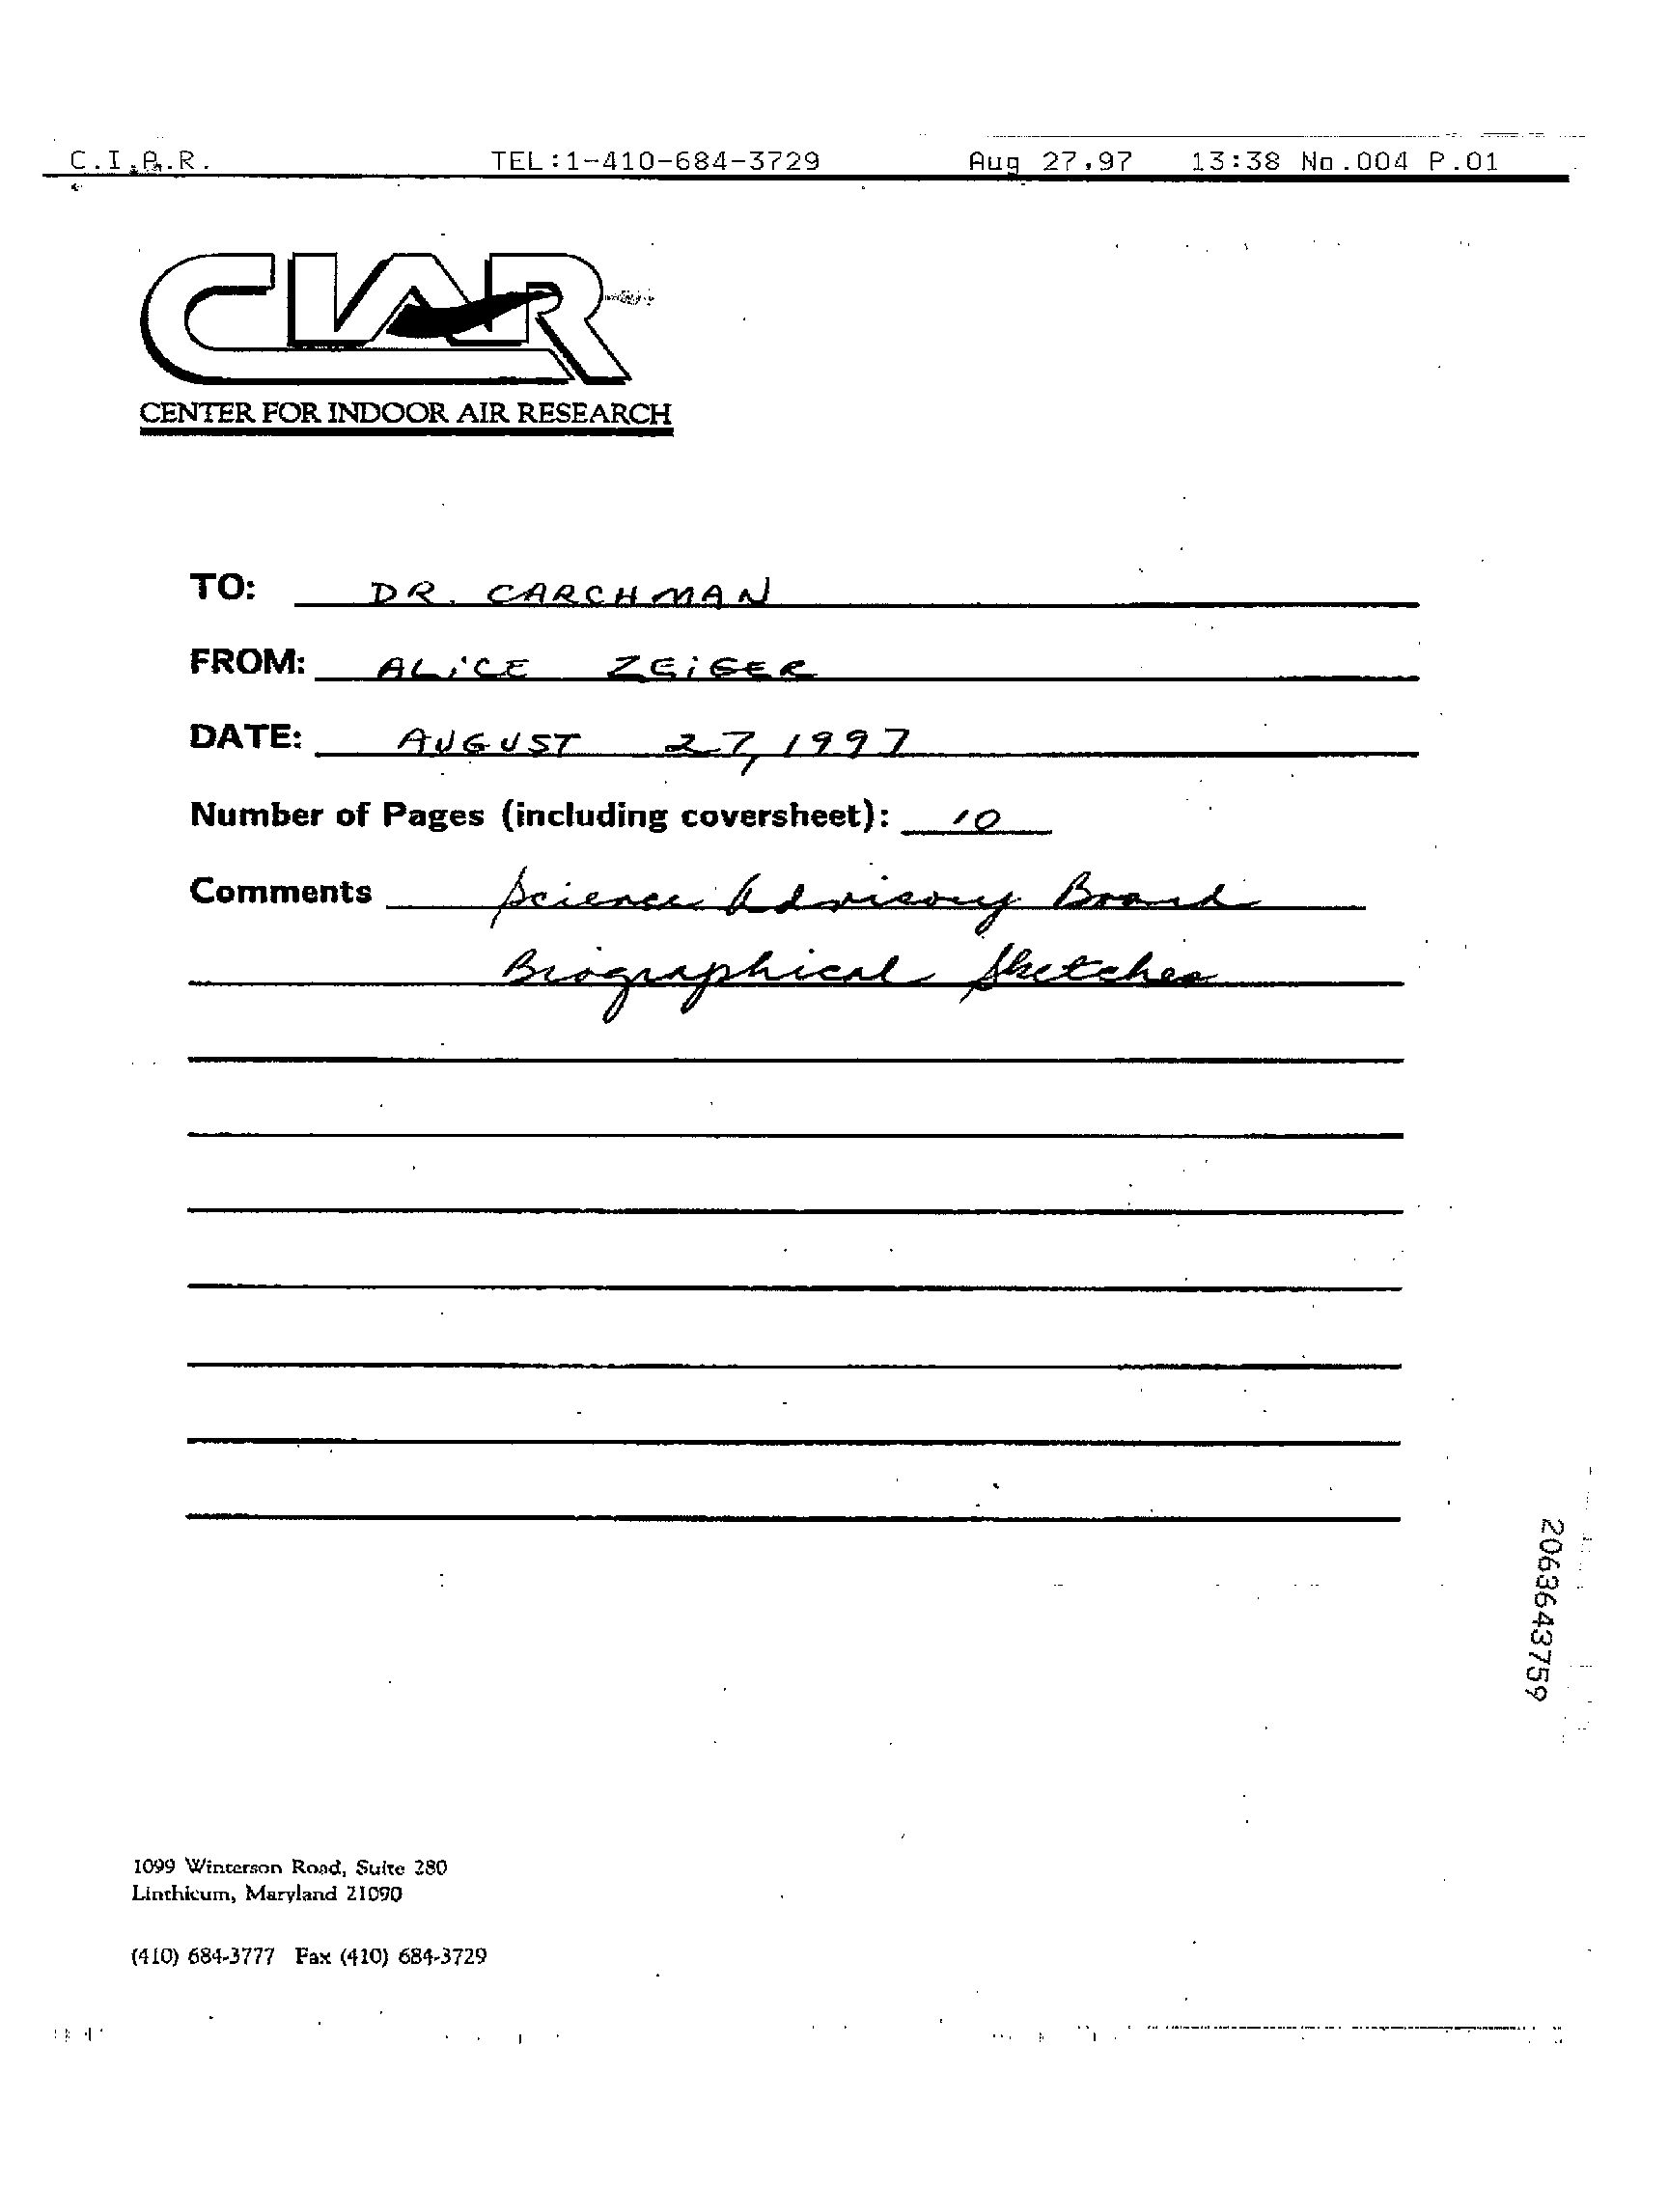 C.I.A.R. TEL:1-410-684-3729 Aug 27,97 13:38 No.004 P.01
CIAR
CENTER FOR INDOOR AIR RESEARCH
TO: DR. CARCHMAN
FROM: ALICE ZEIGER
DATE: AUGUST 27, 1997
Number of Pages (including coversheet): 10
Comments Science Advisory Board
Biographical Sketches
2063643759
1099 Winterson Road, Suite 280
Linthicum, Maryland 21090
(410) 684-3777 Fax (410) 684-3729